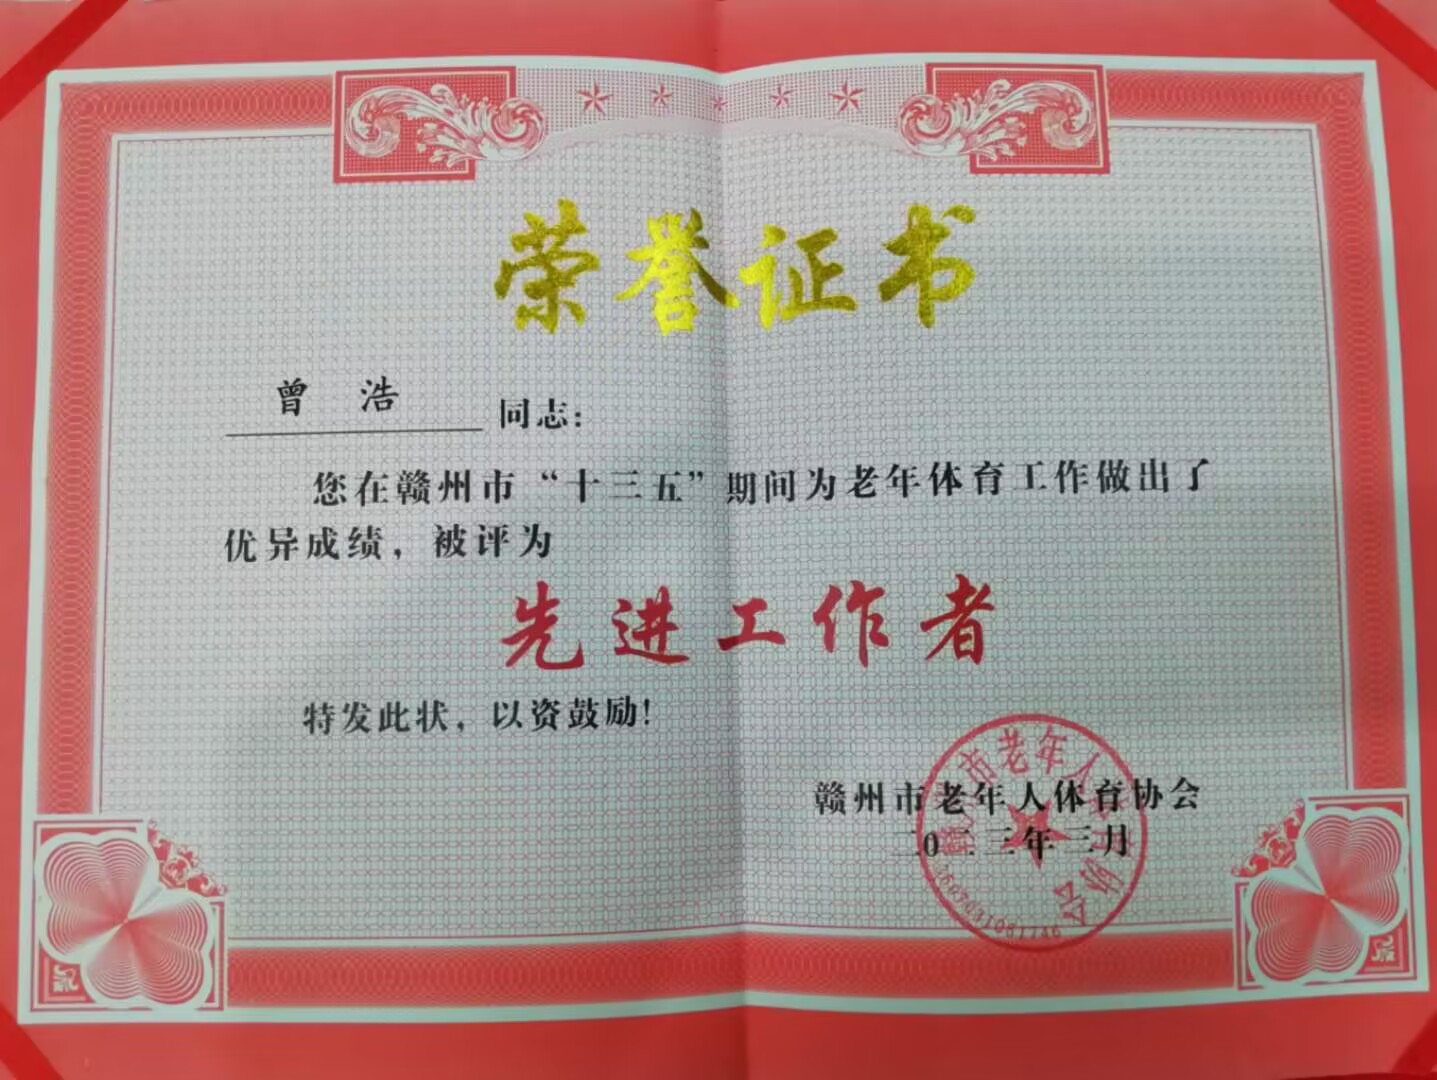 荣誉证书
曾 浩 同志：
您在赣州市“十三五”期间为老年体育工作做出了
优异成绩，被评为
先进工作者
特发此状，以资鼓励！
赣州市老年人体育协会
二〇二三年三月